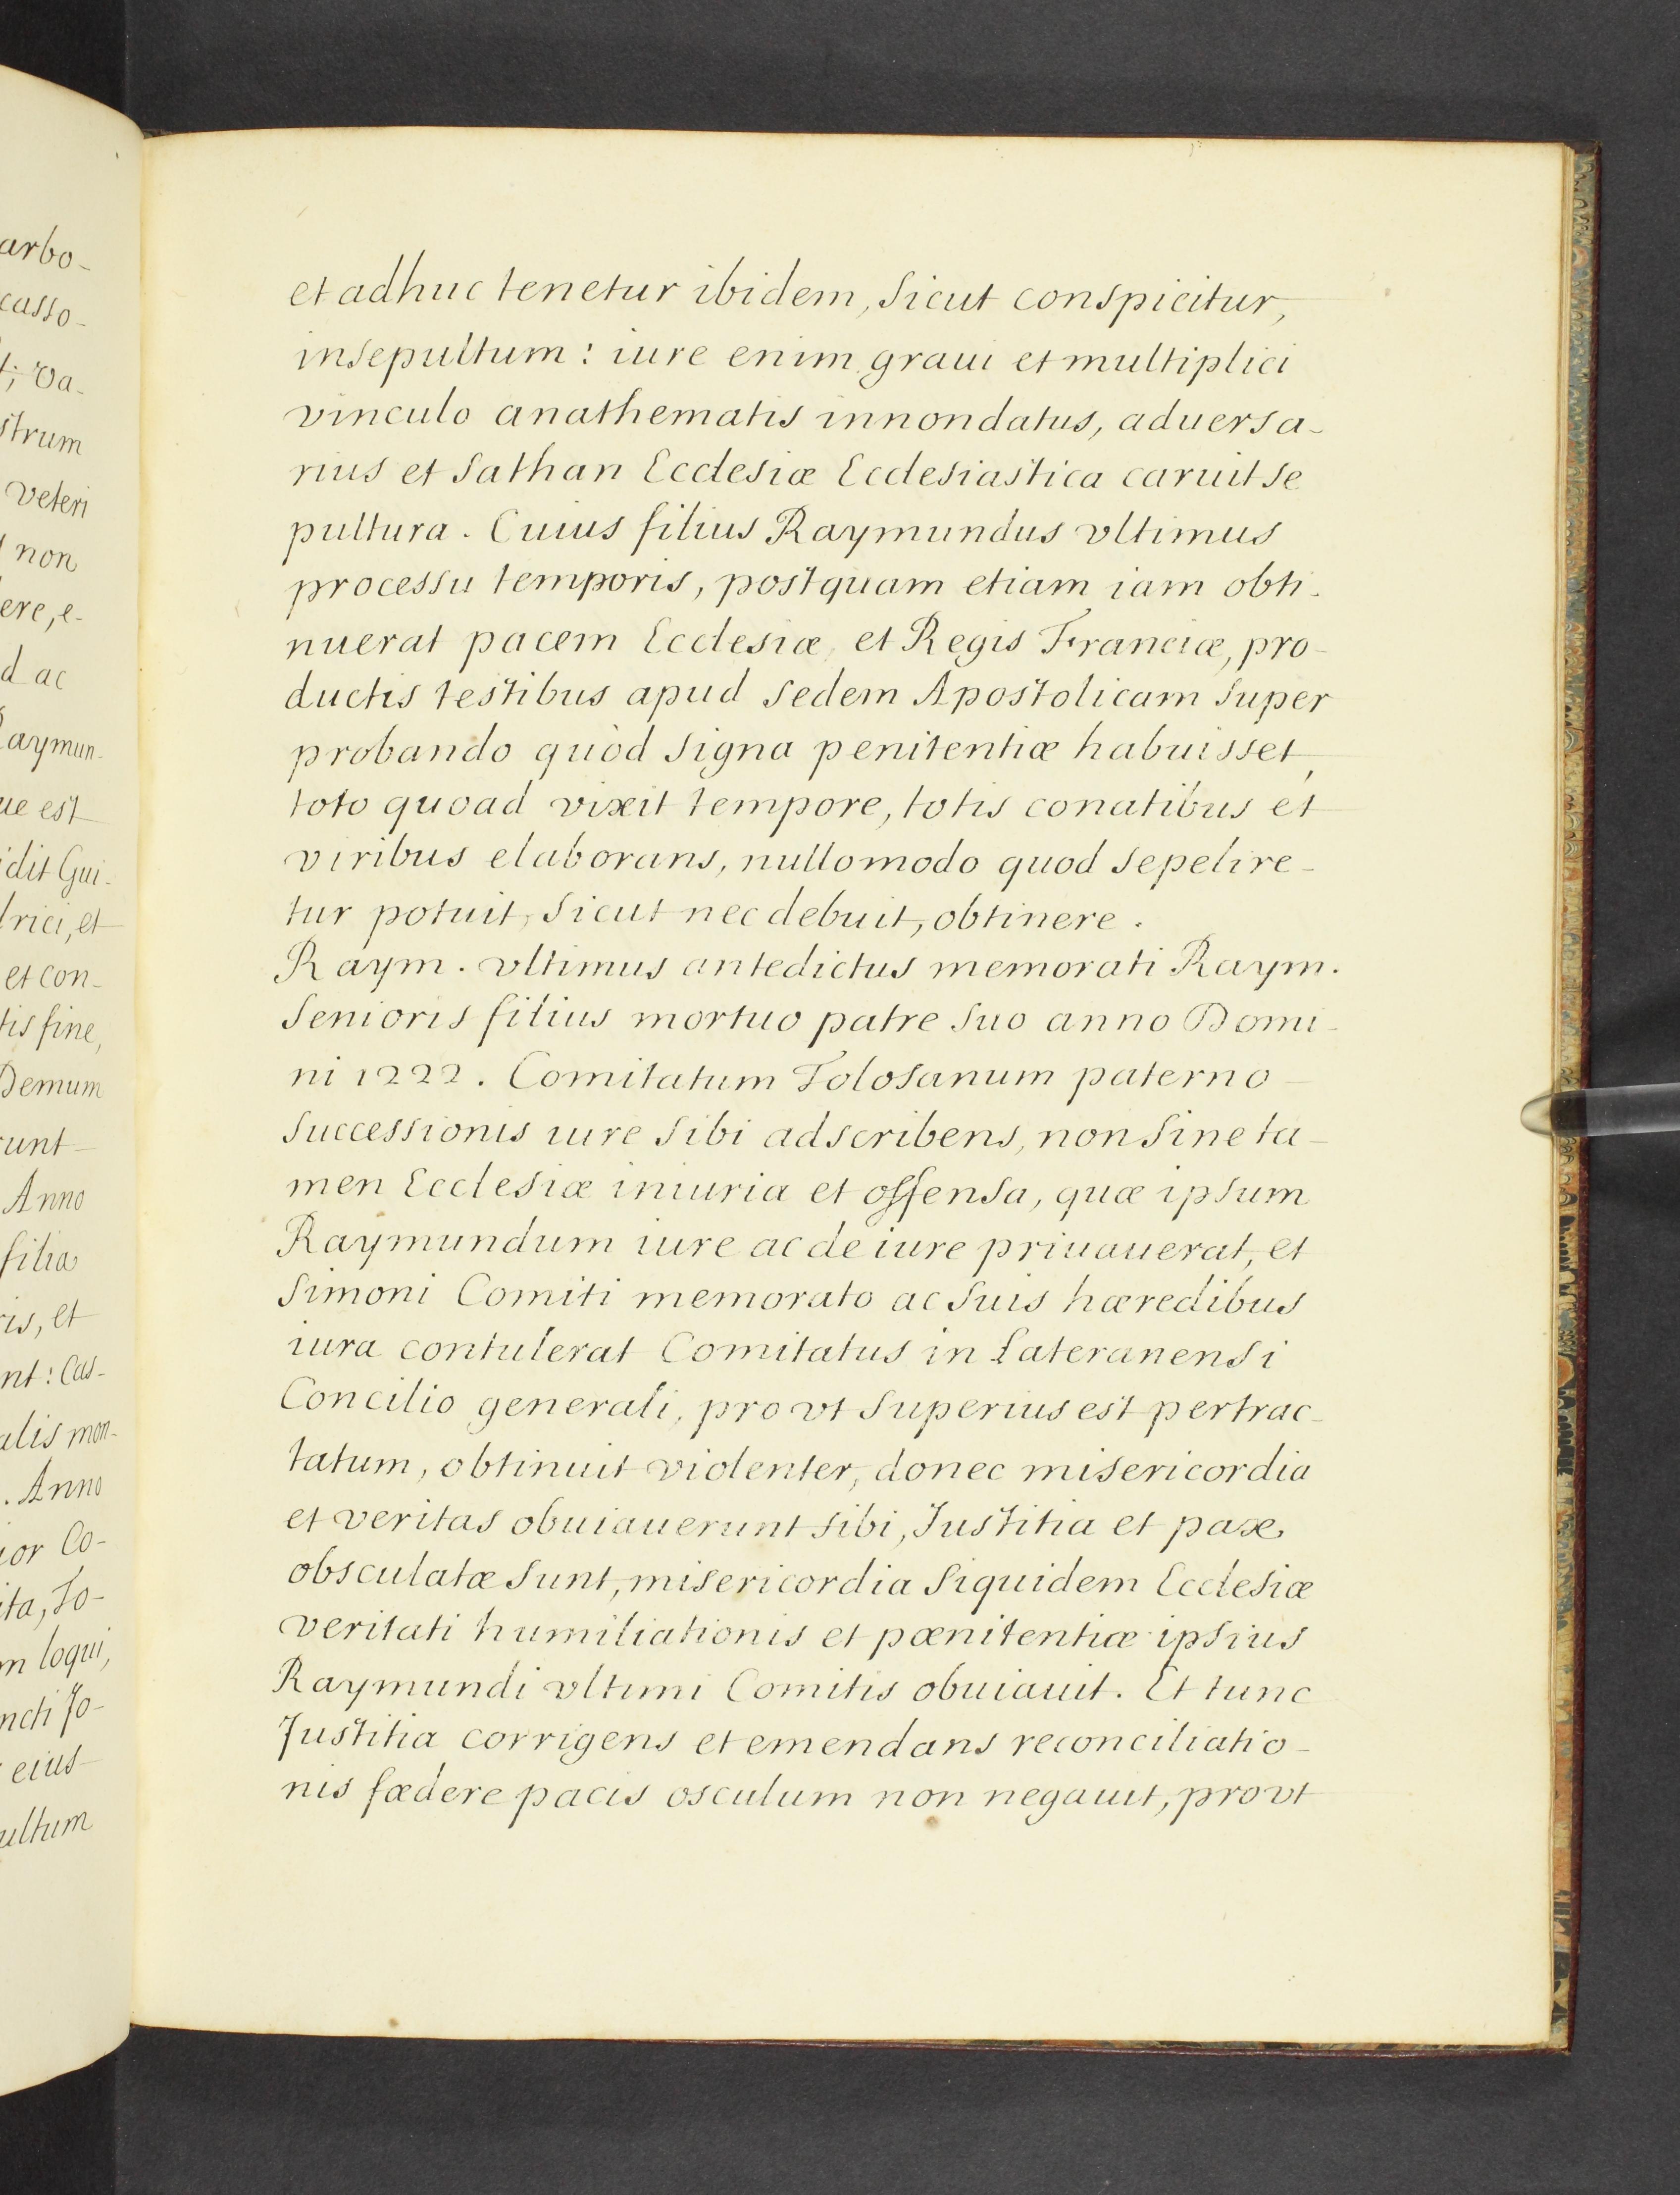 arbo-
casso-
t; Va-
strum
veteri
non
ere, e-
d ac
Raymun-
ue est
idit Gui-
lrici, et
et con-
tis fine,
Demum
runt
Anno
filia
ris, et
nt: Cas-
alis mon-
. Anno
ior Co-
ita, To-
m loqui,
ncti Jo-
eius
ultum
et adhuc tenetur ibidem, sicut conspicitur,
insepultum: iure enim graui et multiplici
vinculo anathematis innondatus, aduersa-
rius et Sathan Ecclesiæ Ecclesiastica caruit se
pultura. Cuius filius Raymundus vltimus
processu temporis, postquam etiam iam obti-
nuerat pacem Ecclesiæ, et Regis Franciæ, pro-
ductis testibus apud Sedem Apostolicam super
probando quòd signa penitentiæ habuisset,
toto quoad vixit tempore, totis conatibus et
viribus elaborans, nullomodo quod sepelire-
tur potuit, sicut nec debuit, obtinere.
Raym. vltimus antedictus memorati Raym.
Senioris filius mortuo patre suo anno Domi-
ni 1222. Comitatum Tolosanum paterno
successionis iure sibi adscribens, non sine ta-
men Ecclesiæ iniuria et offensa, quæ ipsum
Raymundum iure ac de iure priuauerat, et
Simoni Comiti memorato ac suis hæredibus
iura contulerat Comitatus in Lateranensi
Concilio generali, pro vt superius est pertrac-
tatum, obtinuit violenter, donec misericordia
et veritas obuiauerunt sibi, Justitia et pax
obsculatæ sunt, misericordia siquidem Ecclesiæ
veritati humiliationis et pœnitentiæ ipsius
Raymundi vltimi Comitis obuiauit. Et tunc
Justitia corrigens et emendans reconciliatio-
nis fœdere pacis osculum non negauit, pro vt